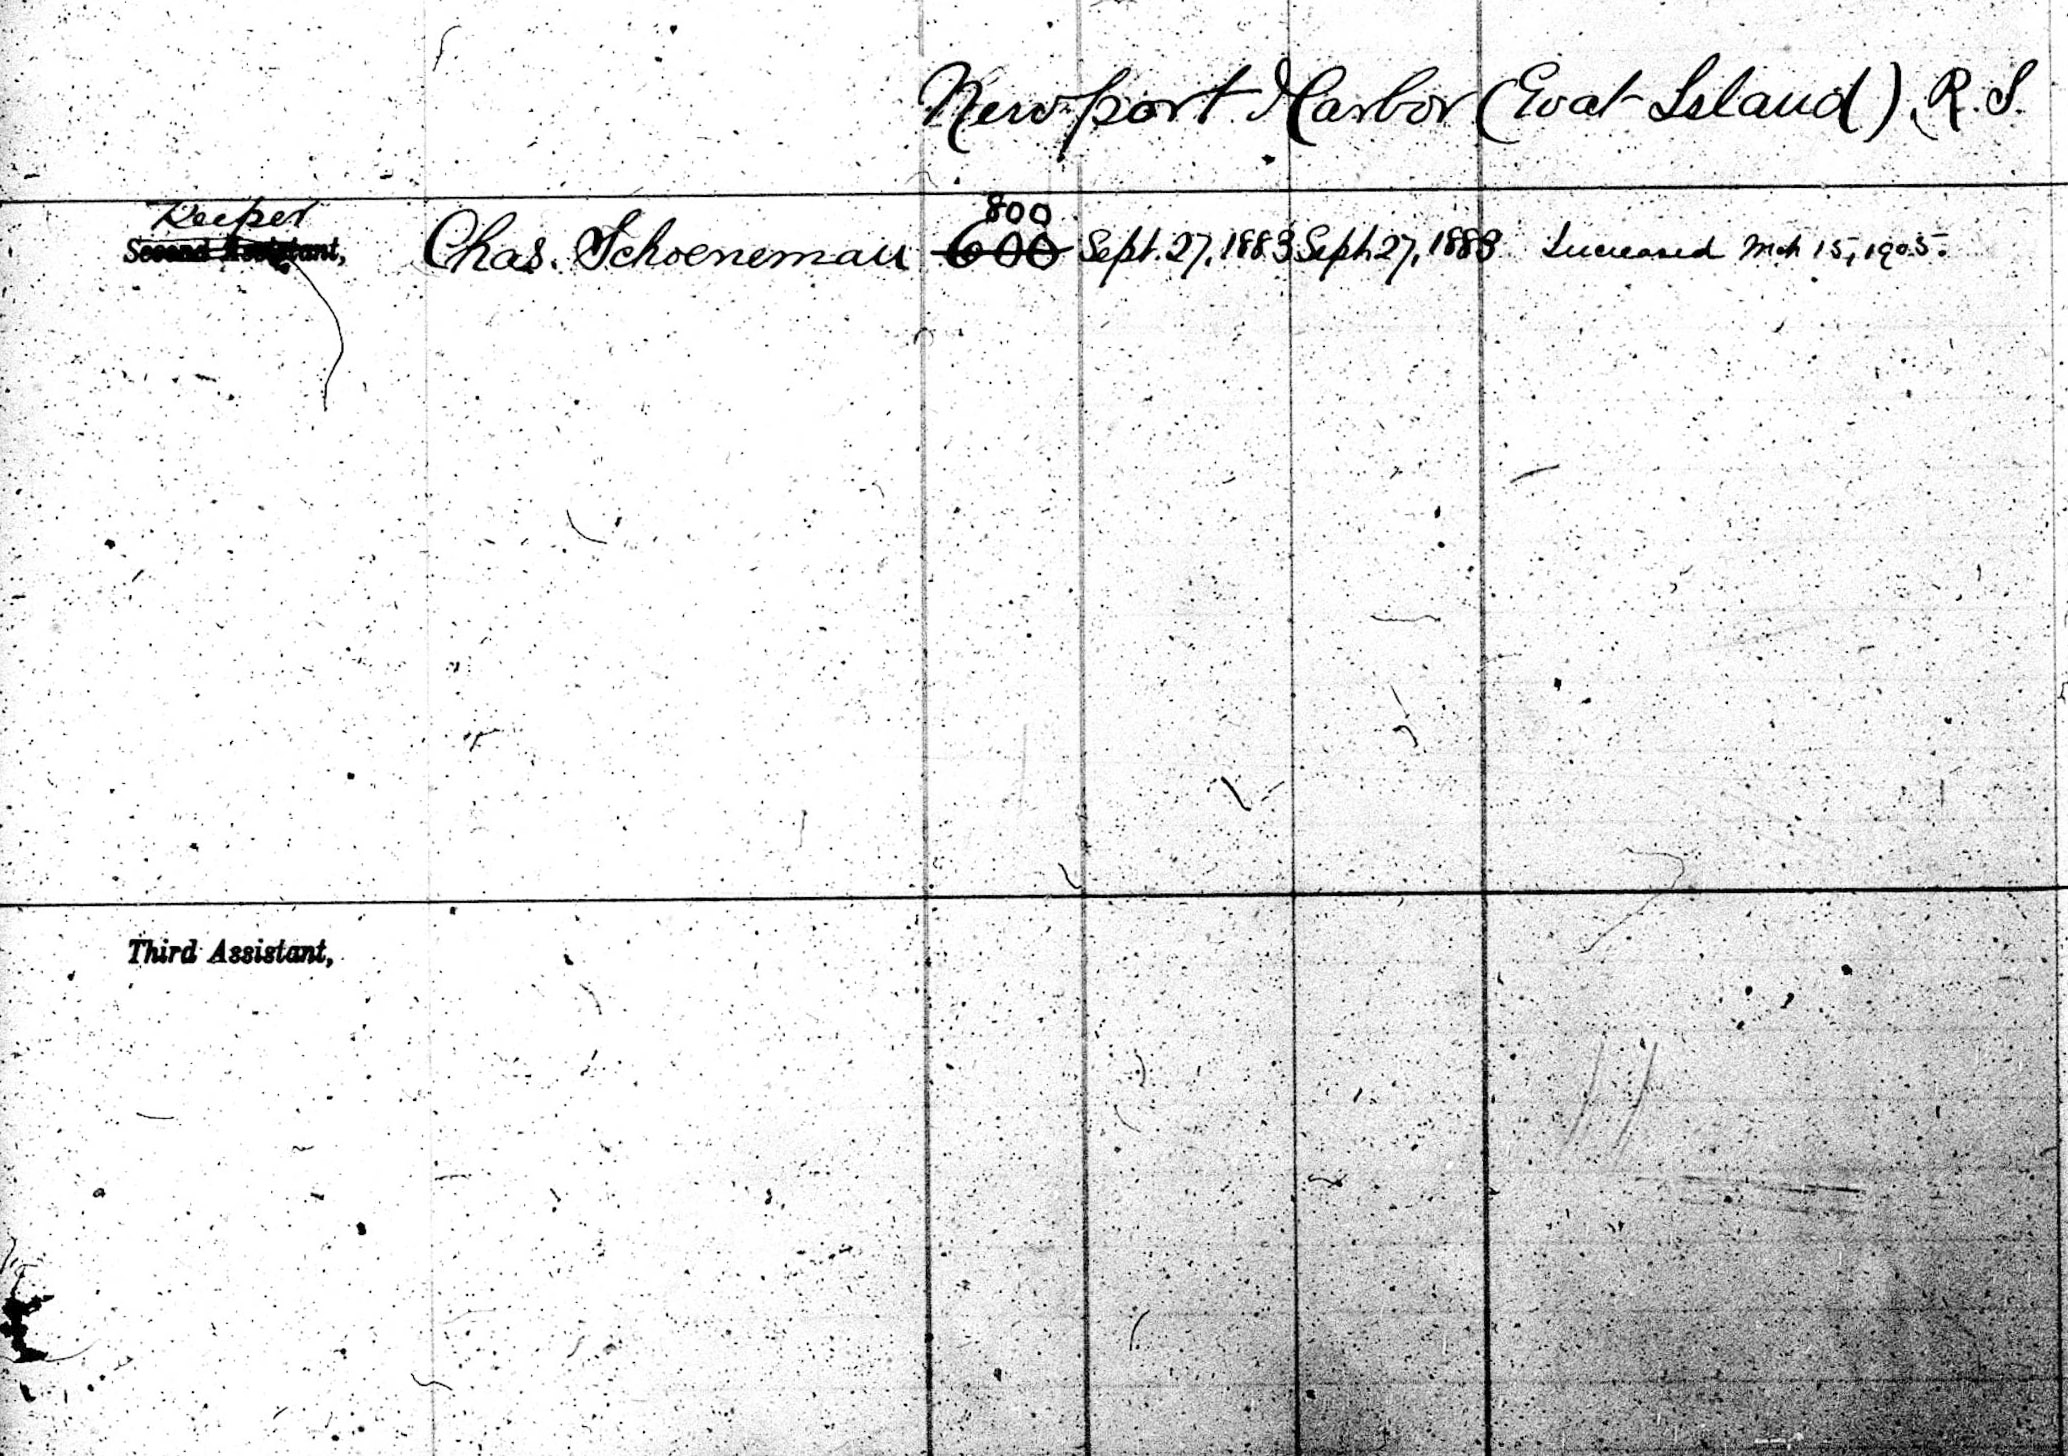 Newport Harbor (Goat Island), R.I.
Keeper
Second Assistant,
Chas. Schoeneman 800 600 Sept. 27, 1883 Sept. 27, 1883 Increased Mch 15, 1905.
Third Assistant,